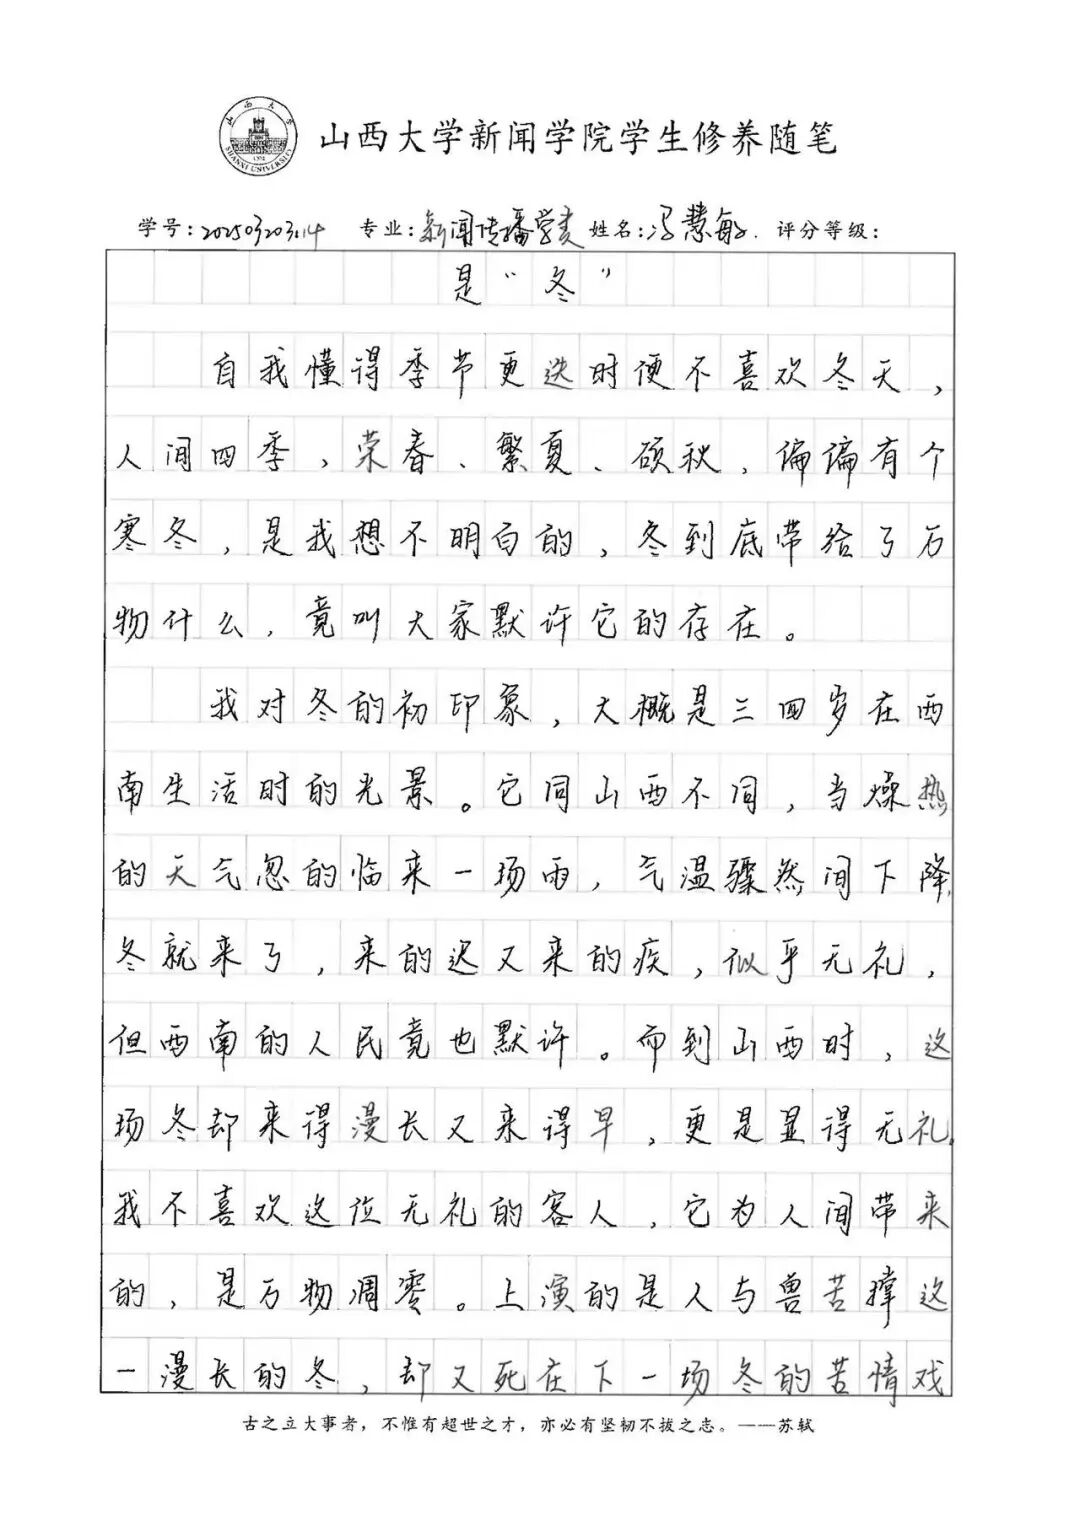 山西大学新闻学院学生修养随笔
学号:202503203114 专业:新闻传播学类 姓名:冯慧敏. 评分等级:
是“冬”
自我懂得季节更迭时便不喜欢冬天,
人间四季,荣春、繁夏、硕秋,偏偏有个
寒冬,是我想不明白的,冬到底带给了万
物什么,竟叫大家默许它的存在。
我对冬的初印象,大概是三四岁在西
南生活时的光景。它同山西不同,当燥热
的天气忽的临来一场雨,气温骤然间下降,
冬就来了,来的迟又来的疾,似乎无礼,
但西南的人民竟也默许。而到山西时,这
场冬却来得漫长又来得早,更是显得无礼。
我不喜欢这位无礼的客人,它为人间带来
的,是万物凋零。上演的是人与兽苦撑这
一漫长的冬,却又死在下一场冬的苦情戏
古之立大事者,不惟有超世之才,亦必有坚韧不拔之志。——苏轼